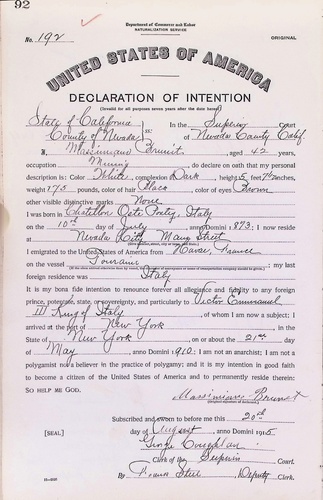 92
Department of Commerce and Labor
NATURALIZATION SERVICE
No. 192
ORIGINAL
UNITED STATES OF AMERICA
DECLARATION OF INTENTION
(Invalid for all purposes seven years after the date hereof)
State of California In the Superior Court
County of Nevada ss: of Nevada County Calif
I, Massimino Brunet, aged 42 years,
occupation Mining, do declare on oath that my personal
description is: Color White, complexion Dark, height 5 feet 7½ inches,
weight 175 pounds, color of hair Black, color of eyes Brown
other visible distinctive marks None
I was born in Chatillon Italy
on the 10th day of July, anno Domini 1873; I now reside
at Nevada City Main Street
I emigrated to the United States of America from Havre, France
on the vessel; my last
foreign residence was Italy
It is my bona fide intention to renounce forever all allegiance and fidelity to any foreign
prince, potentate, state, or sovereignty, and particularly to Victor Emmanuel
III King of Italy, of whom I am now a subject; I
arrived at the port of New York, in the
State of New York, on or about the 21st day
of May, anno Domini 1910; I am not an anarchist; I am not a
polygamist nor a believer in the practice of polygamy; and it is my intention in good faith
to become a citizen of the United States of America and to permanently reside therein:
SO HELP ME GOD.
Massimino Brunet
(Original signature of declarant)
Subscribed and sworn to before me this 20th
[SEAL] day of August, anno Domini 1915
Clerk of the Superior Court.
By Deputy Clerk.